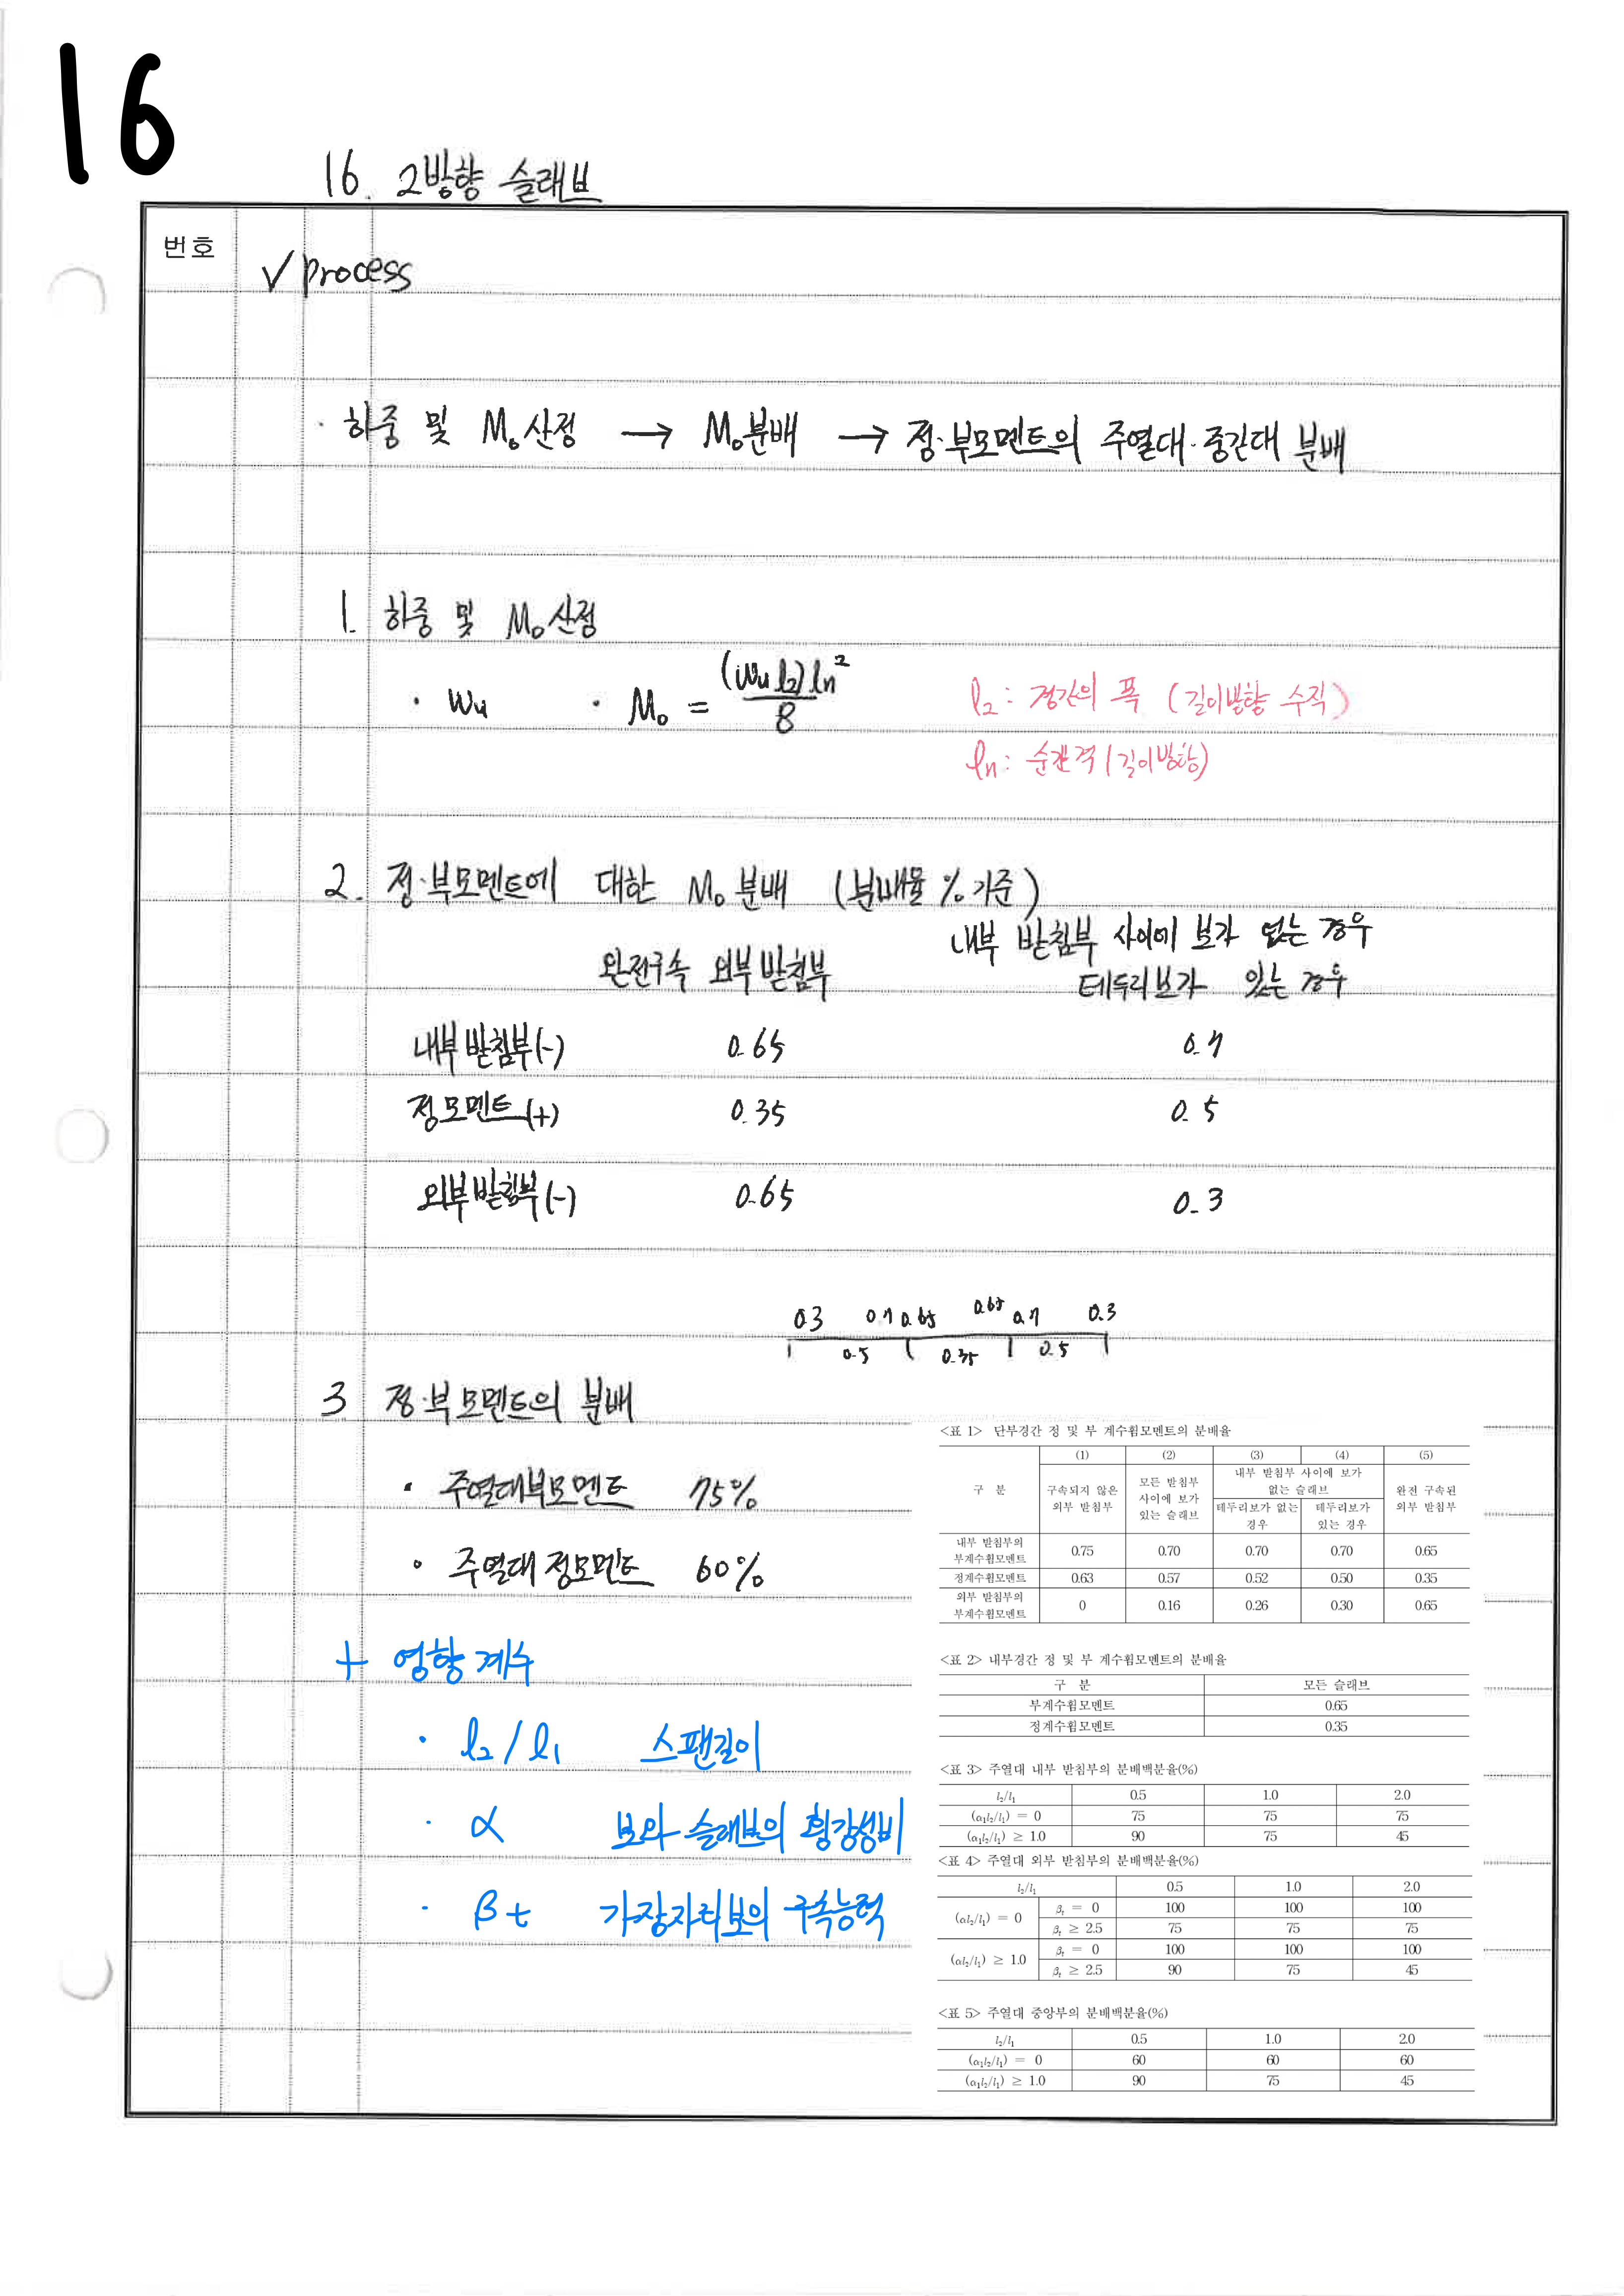 16
16. 2방향 슬래브
번호
√ process
· 하중 및 M₀ 산정 → M₀분배 → 정·부모멘트의 주열대·중간대 분배
1. 하중 및 M₀ 산정
· Wu · M₀ = (Wu l₂) ln² / 8
l₂ : 경간의 폭 (길이방향 수직)
ln : 순간격 (길이방향)
2. 정·부모멘트에 대한 M₀ 분배 (분배율 % 기준)
완전구속 외부 받침부
내부 받침부 사이에 보가 없는 경우
테두리보가 있는 경우
내부 받침부(-) 0.65 0.7
정모멘트(+) 0.35 0.5
외부받침부(-) 0.65 0.3
0.3 0.7 0.65 0.65 0.7 0.3
0.5 0.35 0.5
3 정·부모멘트의 분배
· 주열대부모멘트 75%
· 주열대 정모멘트 60%
+ 영향 계수
· l₂/l₁ 스팬길이
· α 보와 슬래브의 휨강성비
· βt 가장자리보의 구속능력
<표 1> 단부경간 정 및 부 계수휨모멘트의 분배율
구 분
(1) (2) (3) (4) (5)
구속되지 않은 외부 받침부
모든 받침부 사이에 보가 있는 슬래브
내부 받침부 사이에 보가 없는 슬래브
테두리보가 없는 경우
테두리보가 있는 경우
완전 구속된 외부 받침부
내부 받침부의 부계수휨모멘트 0.75 0.70 0.70 0.70 0.65
정계수휨모멘트 0.63 0.57 0.52 0.50 0.35
외부 받침부의 부계수휨모멘트 0 0.16 0.26 0.30 0.65
<표 2> 내부경간 정 및 부 계수휨모멘트의 분배율
구 분 모든 슬래브
부계수휨모멘트 0.65
정계수휨모멘트 0.35
<표 3> 주열대 내부 받침부의 분배백분율(%)
l₂/l₁ 0.5 1.0 2.0
(α₁l₂/l₁) = 0 75 75 75
(α₁l₂/l₁) ≥ 1.0 90 75 45
<표 4> 주열대 외부 받침부의 분배백분율(%)
l₂/l₁ 0.5 1.0 2.0
(αl₂/l₁) = 0 βt = 0 100 100 100
βt ≥ 2.5 75 75 75
(αl₂/l₁) ≥ 1.0 βt = 0 100 100 100
βt ≥ 2.5 90 75 45
<표 5> 주열대 중앙부의 분배백분율(%)
l₂/l₁ 0.5 1.0 2.0
(α₁l₂/l₁) = 0 60 60 60
(α₁l₂/l₁) ≥ 1.0 90 75 45